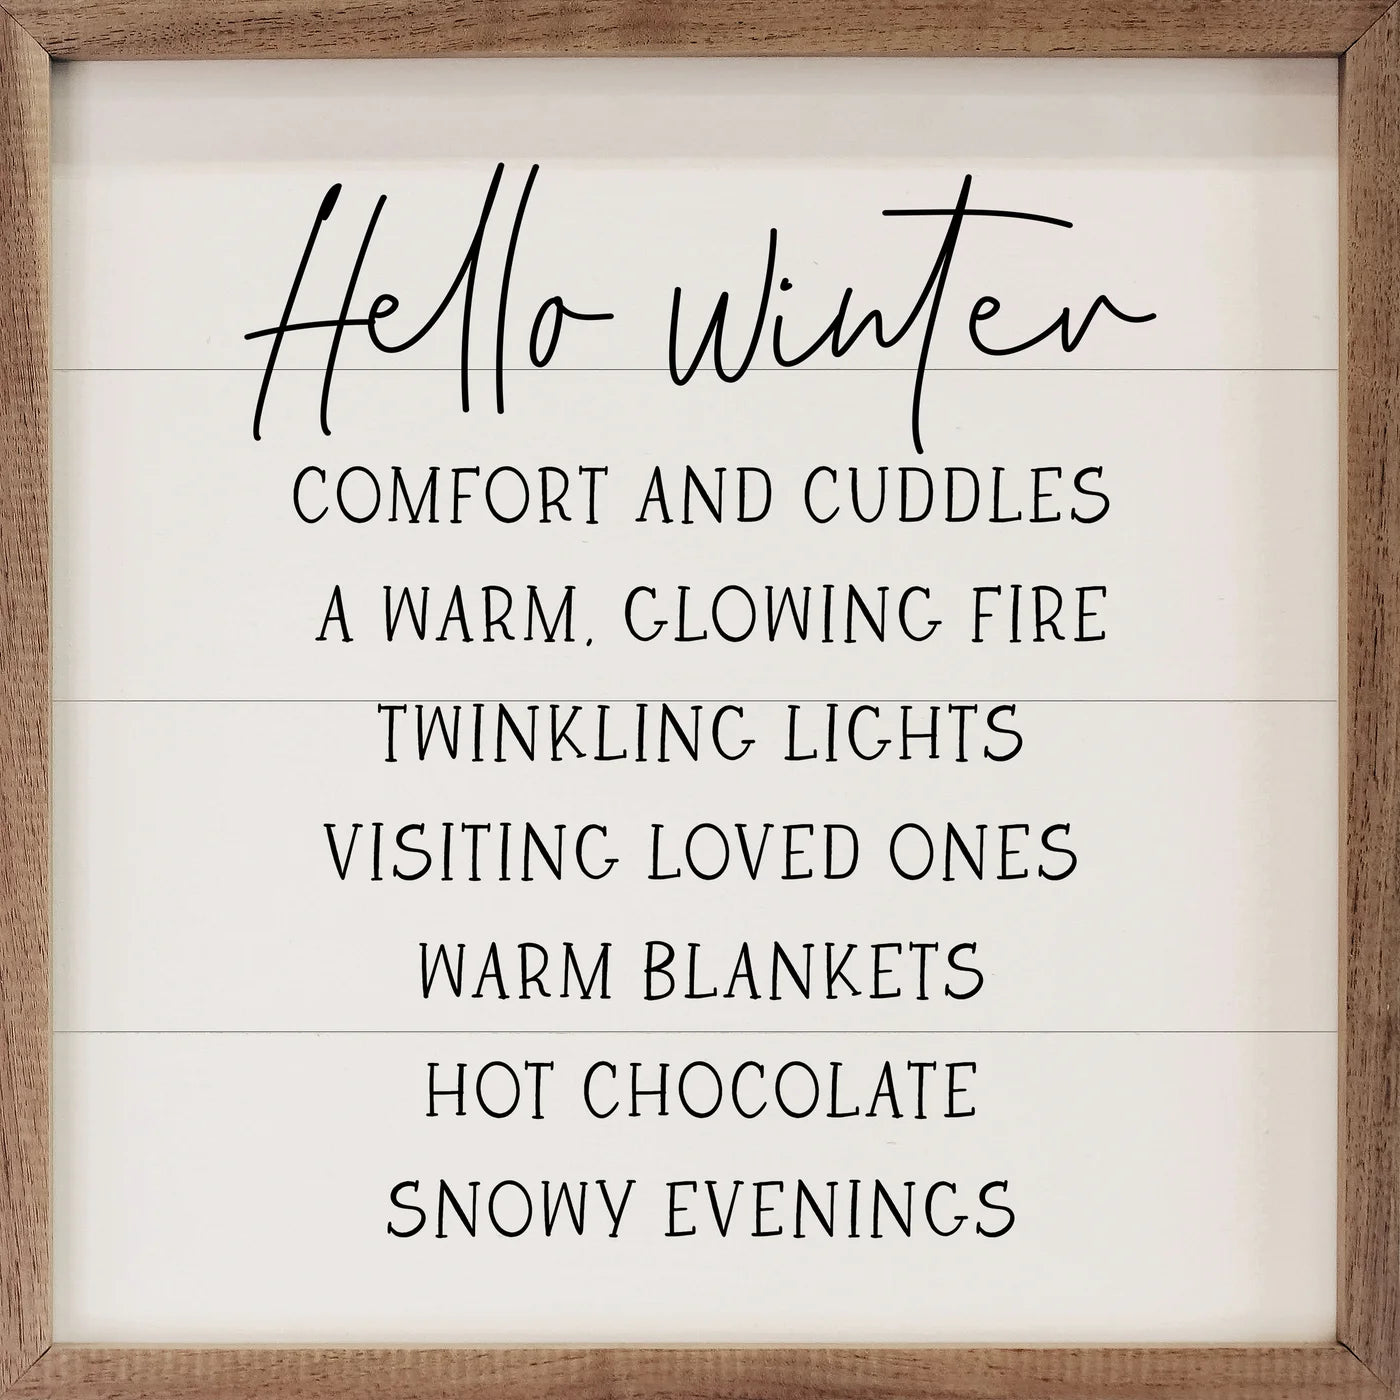 Hello Winter
COMFORT AND CUDDLES
A WARM, GLOWING FIRE
TWINKLING LIGHTS
VISITING LOVED ONES
WARM BLANKETS
HOT CHOCOLATE
SNOWY EVENINGS